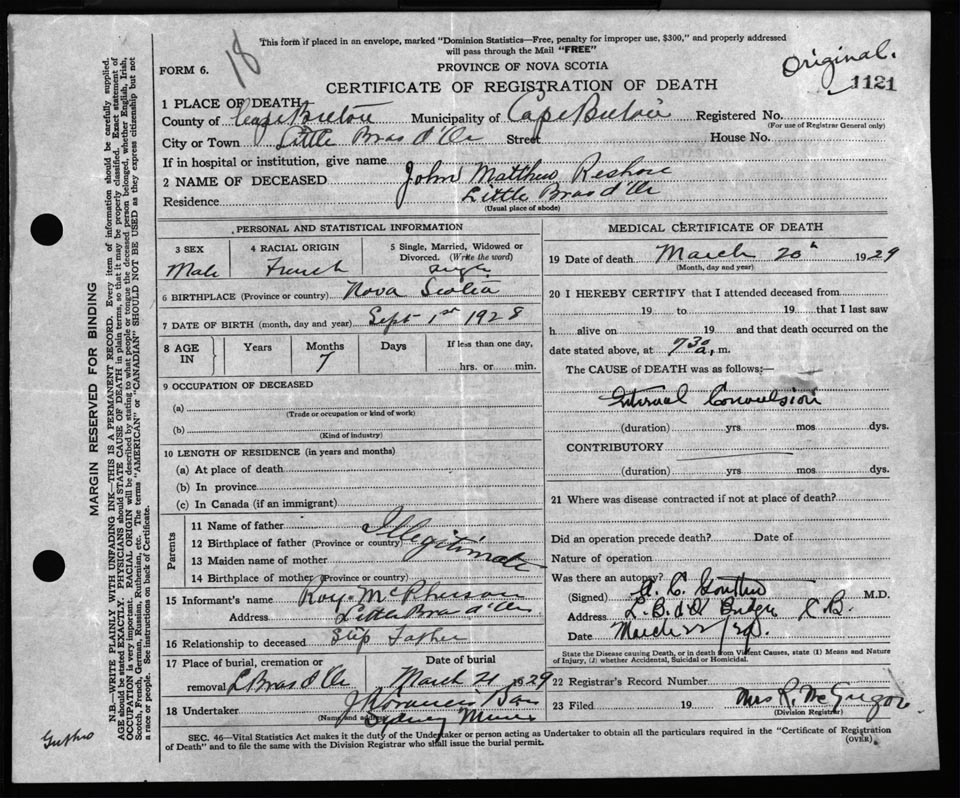 18
This form if placed in an envelope, marked "Dominion Statistics—Free, penalty for improper use, $300," and properly addressed
will pass through the Mail "FREE"
Original.
1121
FORM 6.
PROVINCE OF NOVA SCOTIA
CERTIFICATE OF REGISTRATION OF DEATH
1 PLACE OF DEATH
County of Cape Breton Municipality of Cape Breton Registered No.
(For use of Registrar General only)
City or Town Little Bras d'Or Street House No.
If in hospital or institution, give name
2 NAME OF DECEASED John Matthew
Residence Little Bras d'Or
(Usual place of abode)
PERSONAL AND STATISTICAL INFORMATION
3 SEX 4 RACIAL ORIGIN 5 Single, Married, Widowed or
Divorced. (Write the word)
Male French Single
6 BIRTHPLACE (Province or country) Nova Scotia
7 DATE OF BIRTH (month, day and year) Sept 1st 1928
8 AGE IN Years Months Days If less than one day,
7 hrs. or min.
9 OCCUPATION OF DECEASED
(a)
(Trade or occupation or kind of work)
(b)
(Kind of industry)
10 LENGTH OF RESIDENCE (in years and months)
(a) At place of death
(b) In province
(c) In Canada (if an immigrant)
Parents
11 Name of father
12 Birthplace of father (Province or country)
Illegitimate
13 Maiden name of mother
14 Birthplace of mother (Province or country)
15 Informant's name Roy McPherson
Address Little Bras d'Or
16 Relationship to deceased Step Father
17 Place of burial, cremation or Date of burial
removal L Bras d'Or March 21 1929
18 Undertaker
(Name and address)
Sydney Mines
MEDICAL CERTIFICATE OF DEATH
19 Date of death March 20th 1929
(Month, day and year)
20 I HEREBY CERTIFY that I attended deceased from
19 to 19 that I last saw
h alive on 19 and that death occurred on the
date stated above, at 7 30 a. m.
The CAUSE of DEATH was as follows:—
Internal Convulsion
(duration) yrs mos dys.
CONTRIBUTORY
(duration) yrs mos dys.
21 Where was disease contracted if not at place of death?
Did an operation precede death? Date of
Nature of operation
Was there an autopsy?
(Signed) M.D.
Address L. B. d'Or Bridge C B.
Date March 22/29.
State the Disease causing Death, or in death from Violent Causes, state (1) Means and Nature
of Injury, (2) whether Accidental, Suicidal or Homicidal.
22 Registrar's Record Number
23 Filed 19 Mrs R. McGregor
(Division Registrar)
SEC. 46—Vital Statistics Act makes it the duty of the Undertaker or person acting as Undertaker to obtain all the particulars required in the "Certificate of Registration
of Death" and to file the same with the Division Registrar who shall issue the burial permit.
(OVER)
MARGIN RESERVED FOR BINDING
N.B.—WRITE PLAINLY WITH UNFADING INK—THIS IS A PERMANENT RECORD. Every item of information should be carefully supplied.
AGE should be stated EXACTLY. PHYSICIANS should STATE CAUSE OF DEATH in plain terms, so that it may be properly classified. Exact statement of
OCCUPATION is very important. RACIAL ORIGIN will be described by stating to what people or tongue the deceased person belonged, whether English, Irish,
Scotch, French, German, Russian, Ruthenian, etc. The terms "AMERICAN" or "CANADIAN" SHOULD NOT BE USED as they express citizenship but not
a race or people. See instructions on back of Certificate.